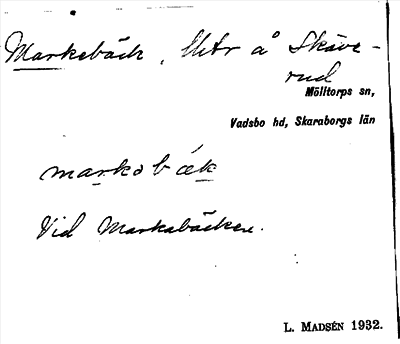 Markebäck, Utr å Skäve-
rud
Mölltorps sn,
Vadsbo hd, Skaraborgs län
markobæk
Vid Markabäcken.
L. MADSÉN 1932.